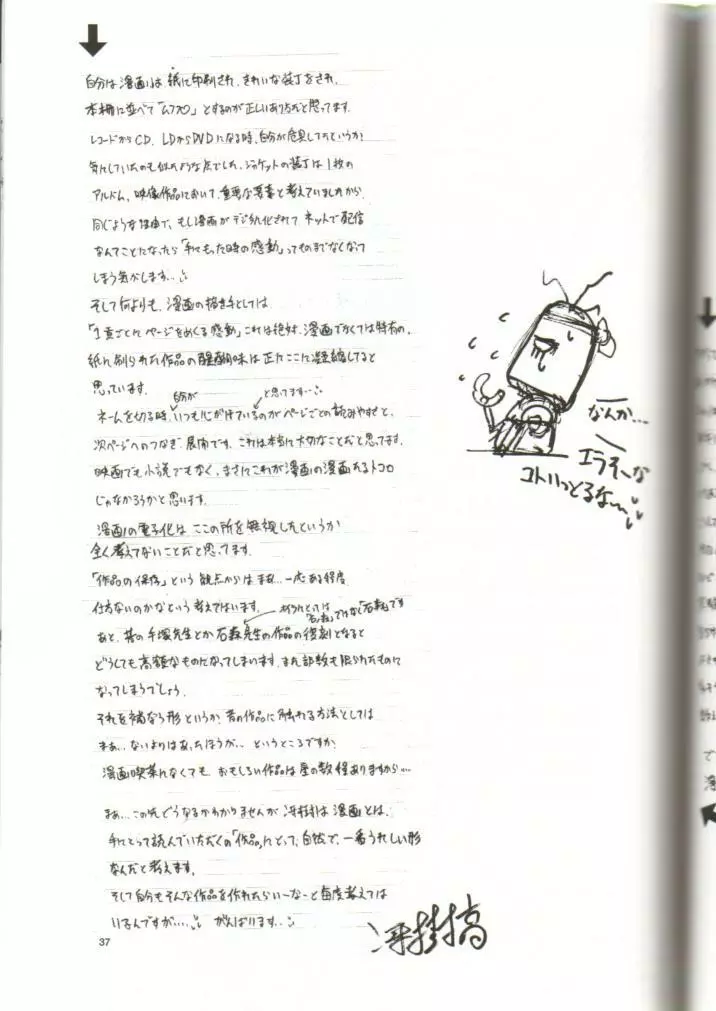 自分は漫画は紙に印刷され、きれいな装丁をされ、
本棚に並べて「ムフフ」とするのが正しいあり方だと思ってます。
レコードからCD、LDからDVDになる時、自分が危具してたというか
気にしていたのも似たような点でした。ジャケットの装丁は1枚の
アルバム、映像作品において、重要な要素と考えていましたから
同じような理由で、もし漫画がデジタル化されて ネットで配信
なんてことになったら「手にもった時の感動」ってものまでなくなって
しまう気がします…
そして何よりも、漫画の描き手としては
「1頁ごとにページをめくる感動」これは絶対、漫画でなくては特有の、
紙に刷られた作品の醍醐味は正にここに凝縮してると
思っています。
自分が
と思てます…
ネームを切る時、いつも心がけているのがページごとの読みやすさと、
次ページへのつなぎ、展開です。これは本当に大切なことだと思ってます。
映画でも小説でもなく、まさにこれが漫画の漫画たるトコロ
じゃなかろうかと思います。
漫画の電子化は、ここの所を無視したというか
全く考えてないことだと思ってます。
「作品の保存」という観点からは まあ…一応ある程度
仕方ないのかなという考えではいます。
あと、昔の手塚先生とか石森先生の作品の復刻となると
どうしても高額なものになってしまいます。また部数も限られたものに
なってしまうでしょう。
それを補なう形というか、昔の作品に触れる方法としては
まあ…ないよりはあったほうが… というところですか?
漫画喫茶になくても、おもしろい作品は星の数程ありますから…
まあ…この先どうなるかわかりませんが 冴樹は 漫画とは、
手にとって読んでいただくの「作品」にとって、自然で、一番うれしい形
なんだと考えます。
そして自分もそんな作品を作れたらいーなーと毎度考えては
いるんですが… がんばります…
なんか…
エラそーな
コトいっとるな〜
37